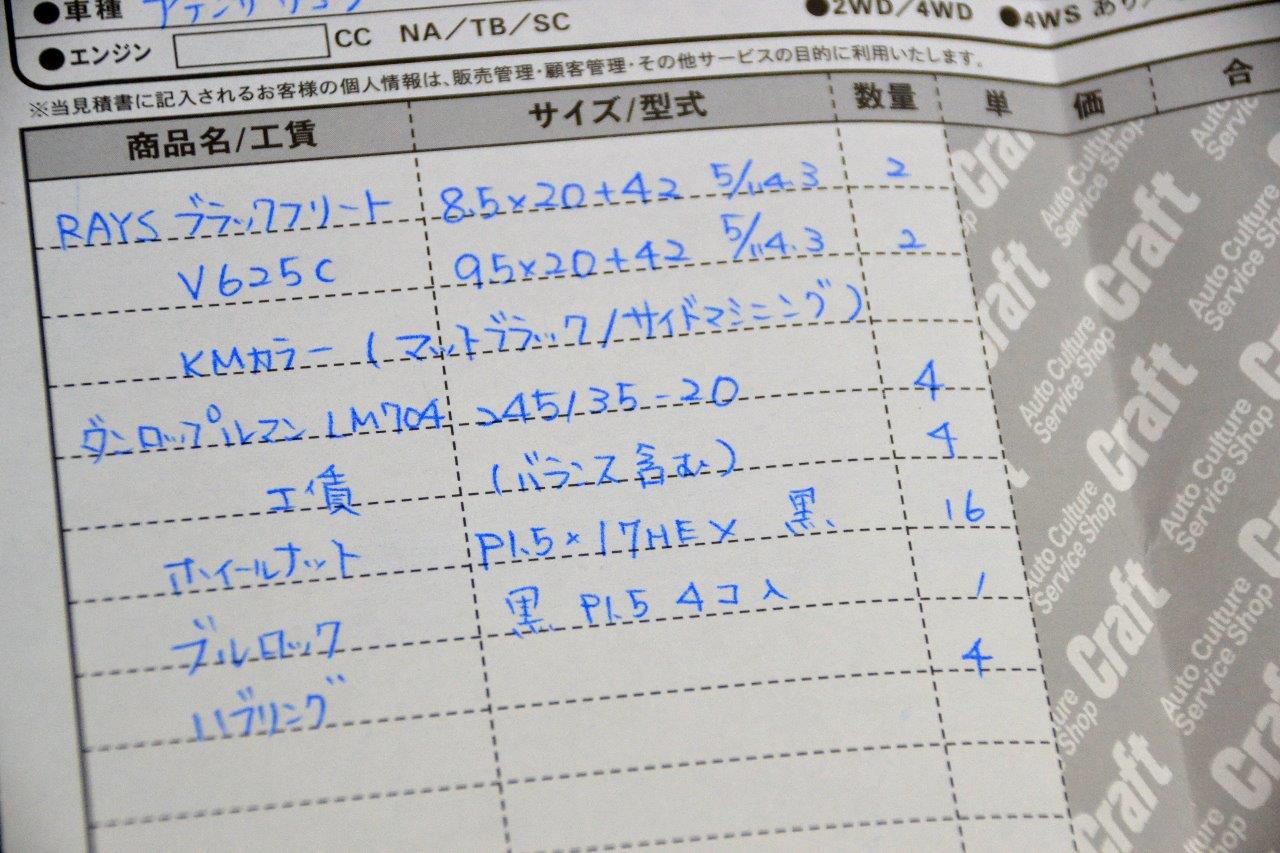 ●車種 アテンザワゴン
●エンジン CC NA/TB/SC ●2WD/4WD ●4WS あり/
※当見積書に記入されるお客様の個人情報は、販売管理・顧客管理・その他サービスの目的に利用いたします。
商品名/工賃 サイズ/型式 数量 単価 合
RAYS ブラックフリート 8.5×20+42 5/114.3 2
V625C 9.5×20+42 5/114.3 2
KMカラー (マットブラック/サイドマシニング)
ダンロップルマン LM704 245/35-20 4
工賃 (バランス含む) 4
ホイールナット P1.5×17HEX 黒 16
ブルロック 黒 P1.5 4コ入 1
ハブリング 4
Auto Culture Service Shop Craft